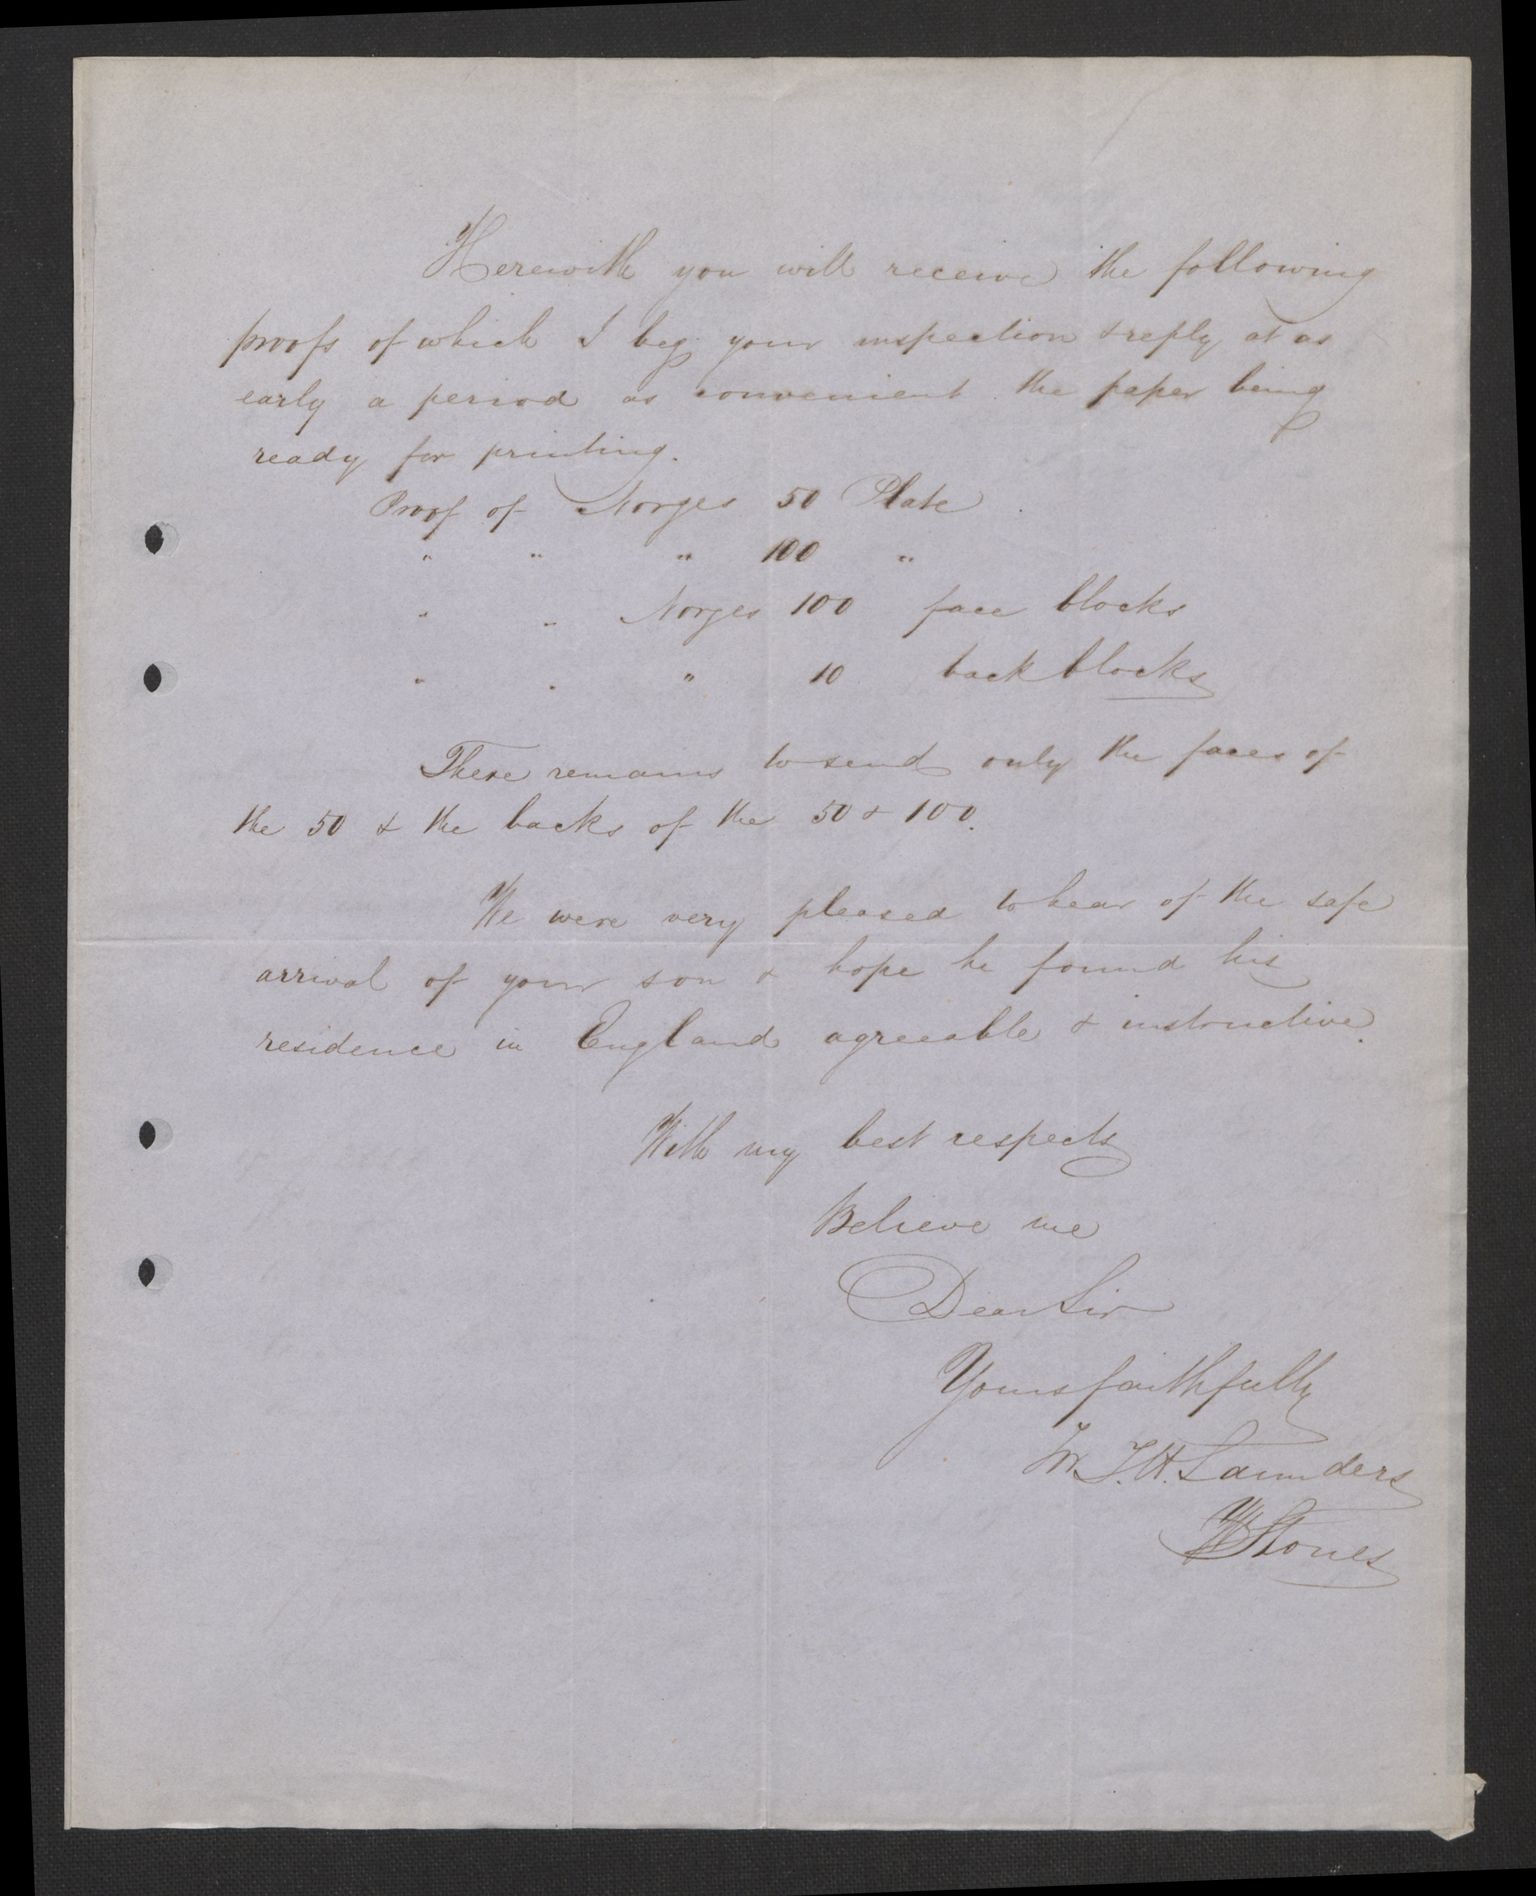 Herewith you will receive the following
proofs of which I beg your inspection & reply at as
early a period as convenient the paper being
ready for printing.
Proof of Norges 50 Plate
" " " 100 "
" " Norges 100 face blocks
" " " 10 back blocks
There remains to send only the faces of
the 50 & the backs of the 50 & 100.
We were very pleased to hear of the safe
arrival of your son & hope he found his
residence in England agreeable & instructive.
With my best respects
Believe me
Dear Sir
Yours faithfully
T. H. Saunders
W Stones